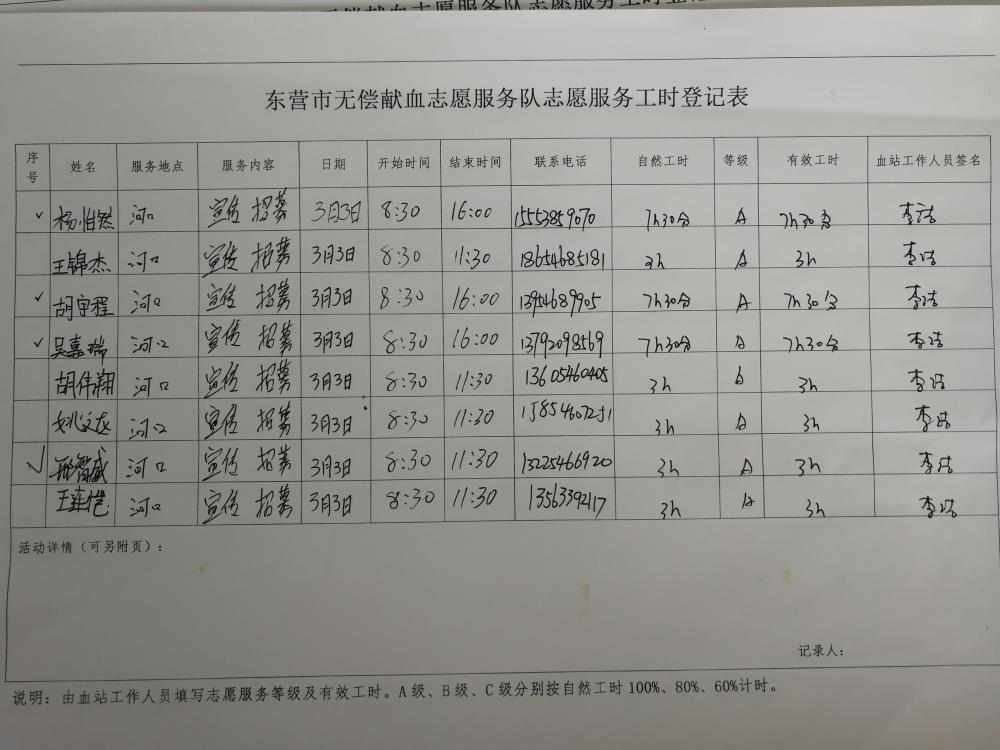 东营市无偿献血志愿服务队志愿服务工时登记表
序号 姓名 服务地点 服务内容 日期 开始时间 结束时间 联系电话 自然工时 等级 有效工时 血站工作人员签名
✓ 杨怡然 河口 宣传 招募 3月3日 8:30 16:00 15553859070 7h30分 A 7h30分 李洁
王锦杰 河口 宣传 招募 3月3日 8:30 11:30 18654685181 3h A 3h 李洁
✓ 胡宇程 河口 宣传 招募 3月3日 8:30 16:00 13954689905 7h30分 A 7h30分 李洁
✓ 吴嘉瑞 河口 宣传 招募 3月3日 8:30 16:00 13792098569 7h30分 A 7h30分 李洁
胡伟翔 河口 宣传 招募 3月3日 8:30 11:30 13605460405 3h 3h 李洁
姚文龙 河口 宣传 招募 3月3日 8:30 11:30 15854607251 3h A 3h 李洁
✓ 河口 宣传 招募 3月3日 8:30 11:30 13225466920 3h A 3h 李洁
王连恺 河口 宣传 招募 3月3日 8:30 11:30 13563392117 3h A 3h 李洁
活动详情（可另附页）：
记录人：
说明：由血站工作人员填写志愿服务等级及有效工时。A级、B级、C级分别按自然工时100%、80%、60%计时。